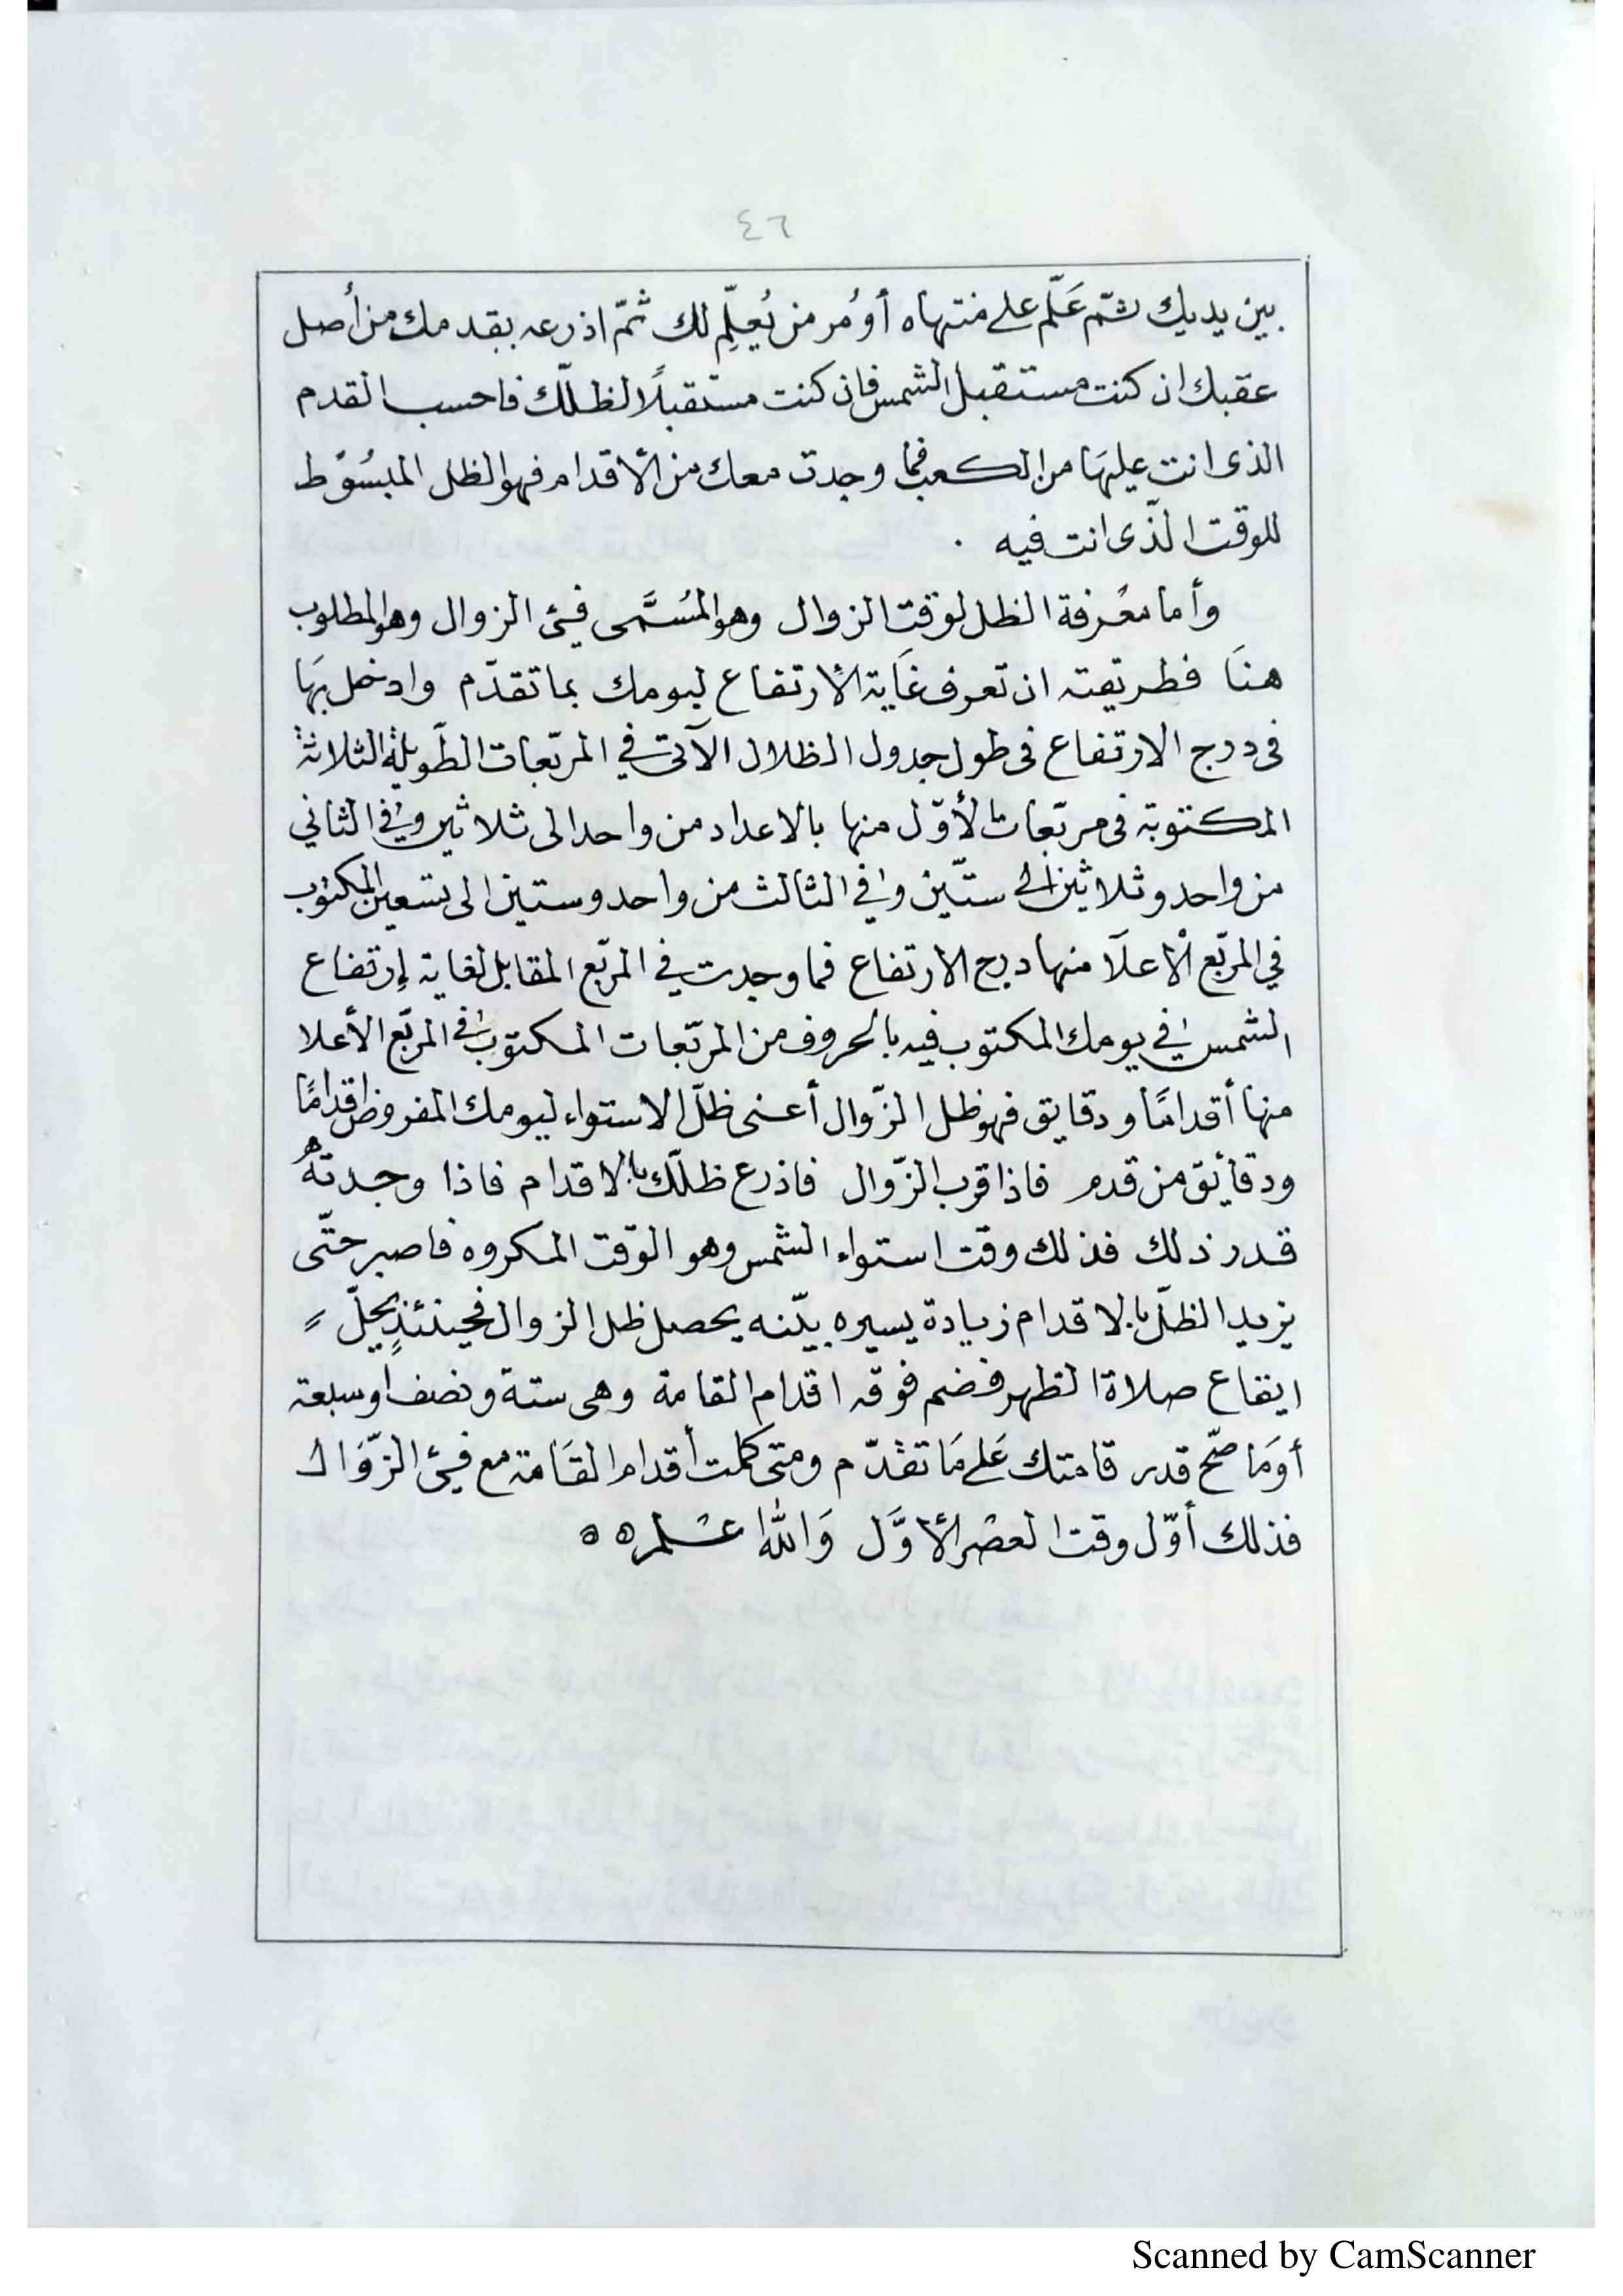 ٤٦
بين يديك ثمّ عَلّم على منتهاه أو مُر من يُعلِّم لك ثمّ اذرعه بقدمك من أصل
عقبك ان كنت مستقبل الشمس فان كنت مستقبلًا لظلّك فاحسب القدم
الذى انت عليهَا من الكعب فما وجدت معك من الأقدام فهو الظل المبسُوط
للوقت الذّى انت فيه .
وأما معْرفة الظل لوقت الزوال وهو المُسَمَّى فيئ الزوال وهو المطلوب
هنَا فطريقته ان تعرف غَاية الأرتفاع ليومك بما تقدّم وادخل بهَا
فى درج الارتفاع فى طول جدول الظلال الآتى في المربّعات الطّويلة الثلاثة
المكتوبة فى مربّعات الأوّل منها بالاعداد من واحد الى ثلاثين وفي الثاني
من واحد وثلاثين الى ستّين وفي الثالث من واحد وستين الى تسعين المكتوب
في المربّع الأعلَا منها درج الارتفاع فما وجدت في المربّع المقابل لغاية إرتفاع
الشمس في يومك المكتوب فيه بالحروف من المربّعات المكتوب في المربّع الأعلا
منها أقدامًا ودقايق فهو ظل الزّوال أعنى ظلّ الاستواء ليومك المفروض اقدامًا
ودقأيق من قدم فاذا قرب الزّوال فاذرع ظلّك بالاقدام فاذا وجدتهُ
قدر ذلك فذلك وقت استواء الشمس وهو الوقت المكروه فاصبر حتّى
يزيد الظلّ بالاقدام زيادة يسيره بيّنه يحصل ظل الزوال فحينئذٍ يحلّ
ايقاع صلاة الظهر فضم فوقه اقدام القامة وهى ستة ونصف او سبعة
أو مَا صحّ قدر قامتك عَلى مَا تقدّم ومتى كملت أقدام القَامة مع فيئ الزّوَال
فذلك أوّل وقت العصْر الأوَّل وَالله اعلم ه ه
Scanned by CamScanner